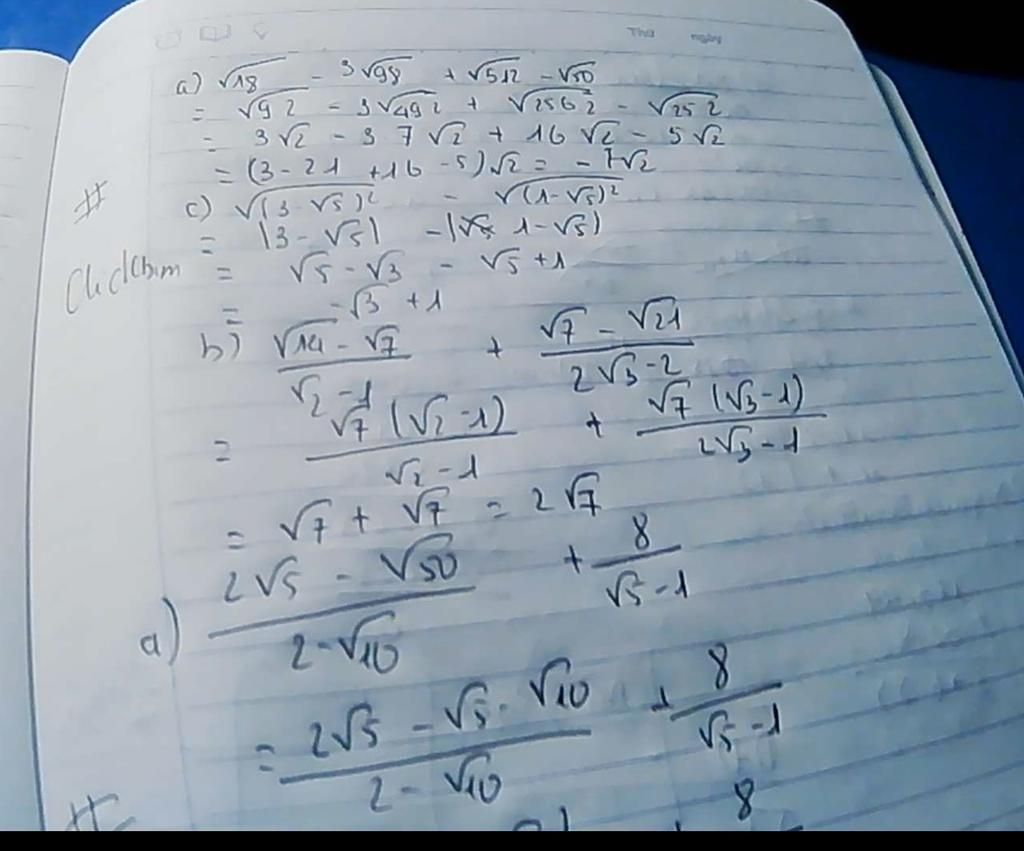 Thứ ngày
a) √18 - 3√98 + √512 - √50
= √9 2 - 3√49 2 + √256 2 - √25 2
= 3√2 - 3 7√2 + 16√2 - 5√2
= (3 - 21 + 16 - 5)√2 = -7√2
c) √(3 - √5)² - √(1 - √5)²
= |3 - √5| - | 1 - √5)
= √5 - √3 - √5 + 1
= -√3 + 1
b) (√14 - √7)/(√2 - 1) + (√7 - √21)/(2√3 - 2)
= √7(√2 - 1)/(√2 - 1) + √7(√3 - 1)/(2√3 - 1)
= √7 + √7 = 2√7
a) (2√5 - √50)/(2 - √10) + 8/(√5 - 1)
= (2√5 - √5 . √10)/(2 - √10) + 8/(√5 - 1)
8
#
#